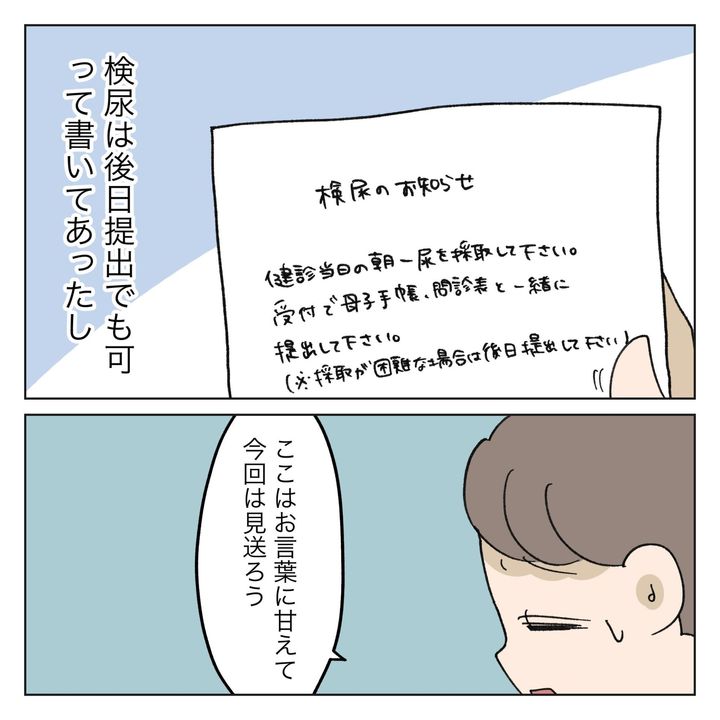 検尿は後日提出でも可
って書いてあったし
検尿のお知らせ
健診当日の朝一尿を採取して下さい。
受付で母子手帳、問診表と一緒に
提出して下さい。
(※採取が困難な場合は後日提出して下さい)
ここはお言葉に甘えて
今回は見送ろう